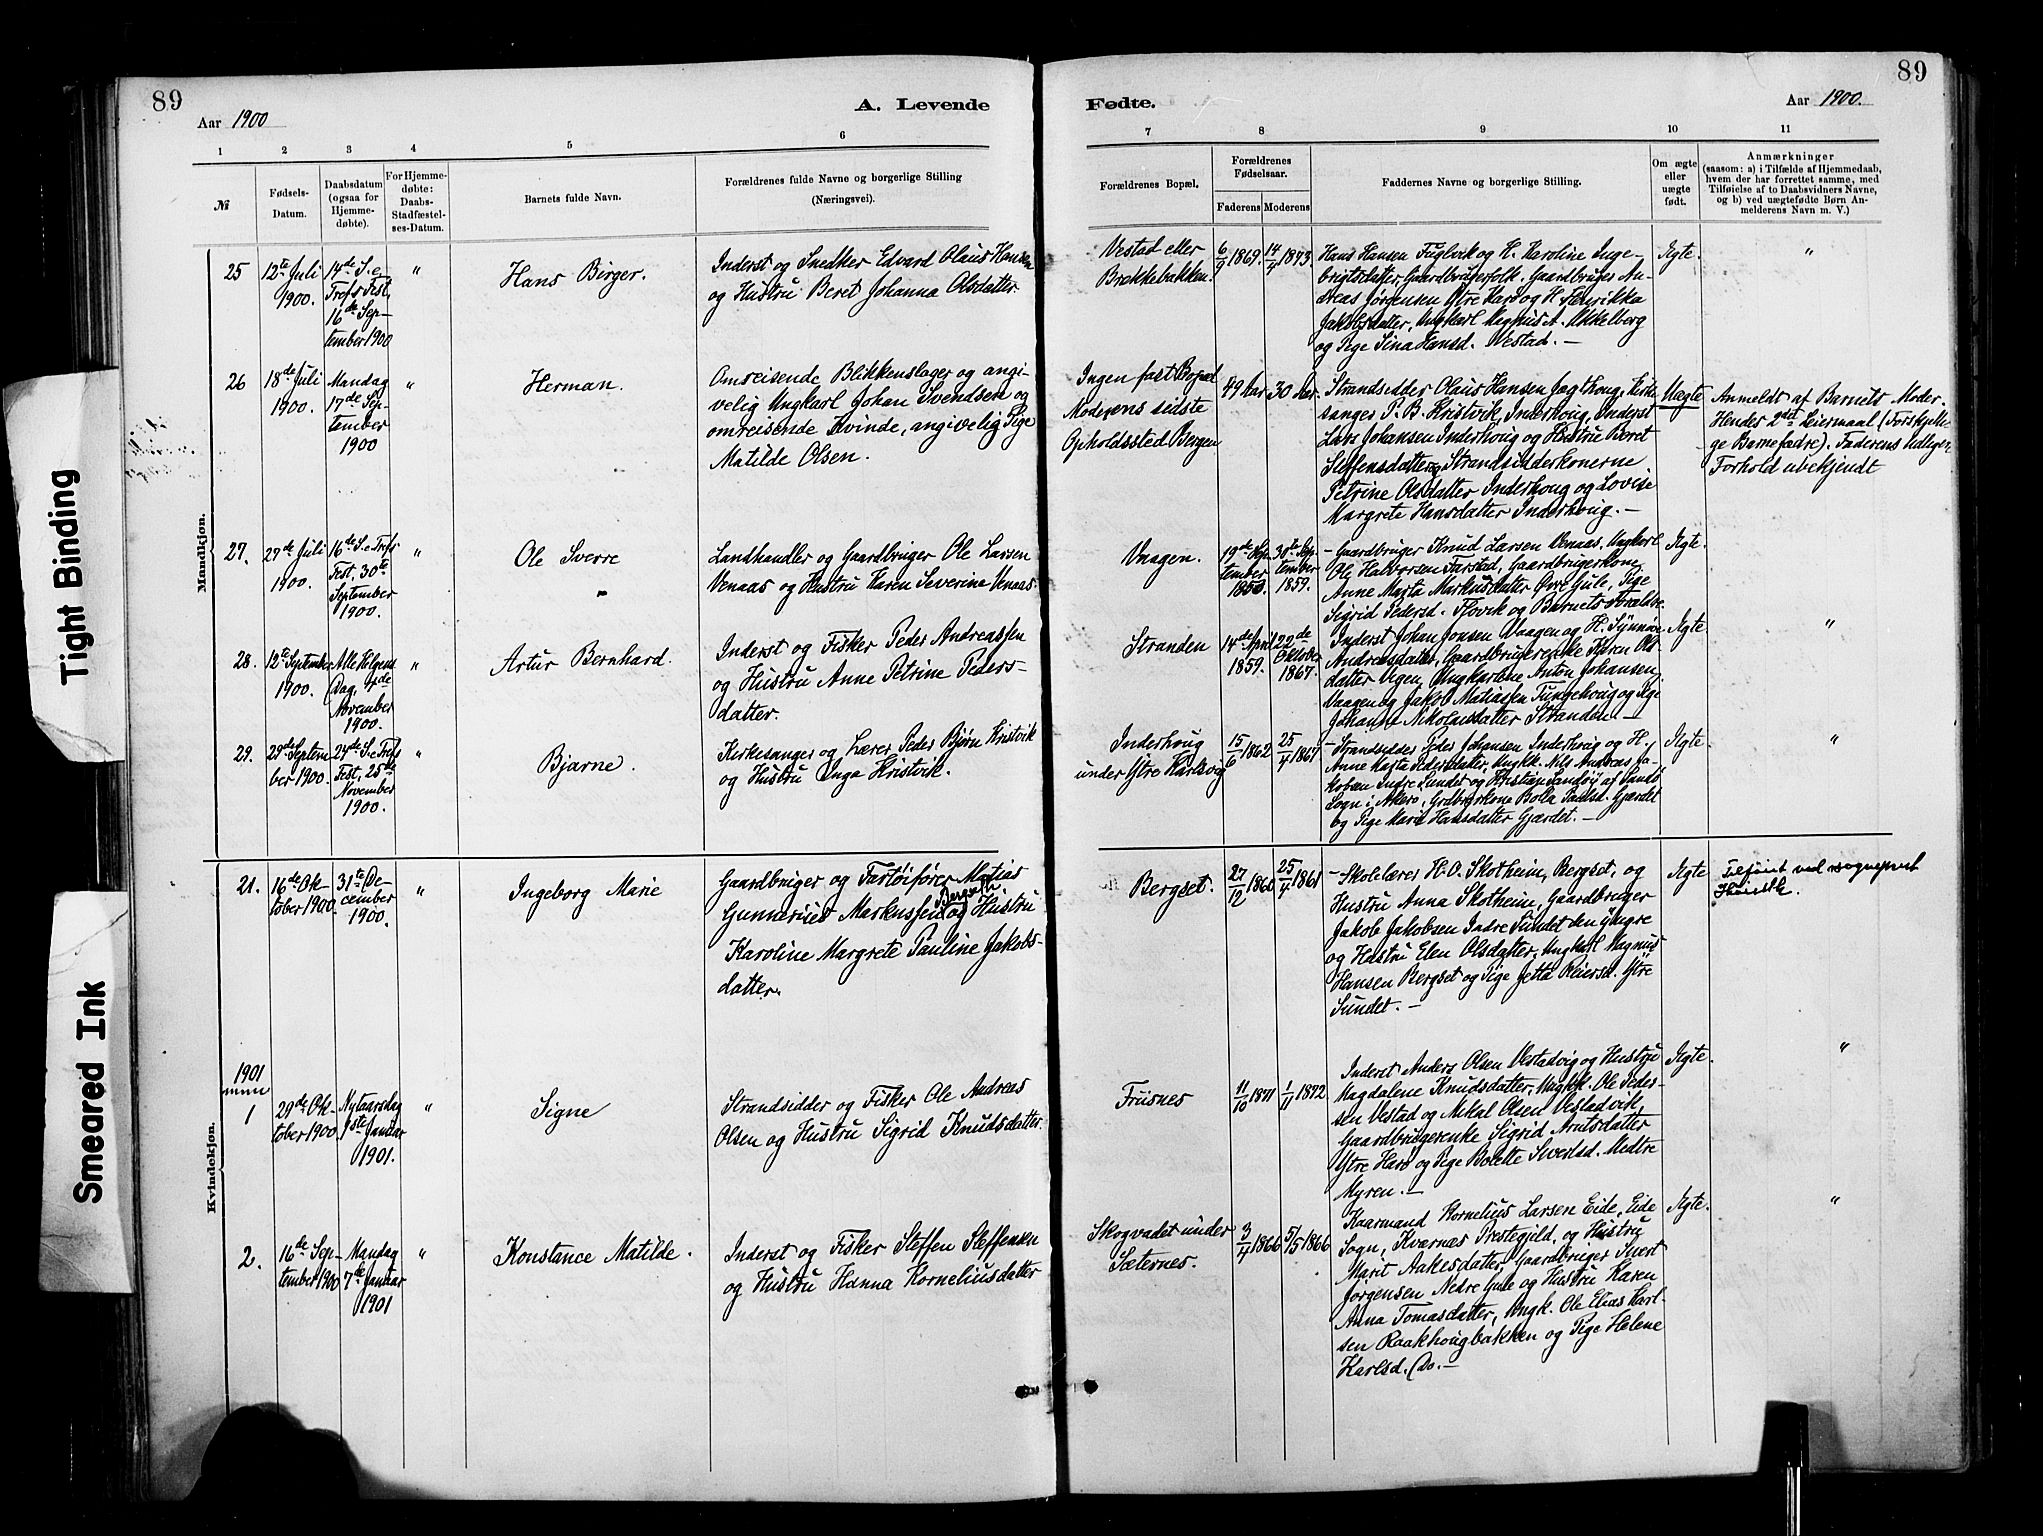 89
Aar 1900
A. Levende
1
2
3
4
5
6
№
Fødsels-
Datum.
Daabsdatum
(ogsaa for
Hjemme-
døbte).
For Hjemme-
døbte:
Daabs-
Stadfæstel-
ses-Datum.
Barnets fulde Navn.
Forældrenes fulde Navne og borgerlige Stilling
(Næringsvei).
Mandkjøn.
25
12te Juli
1900.
14de S. e.
Trefs Fest,
16de Sep-
tember 1900
"
Hans Birger.
Inderst og Snedker Edvard Olaus Hansen
og Hustru Beret Johanna Olsdatter.
26
18de Juli
1900.
Mandag
17de Sep-
tember
1900
"
Herman.
Omreisende Blikkenslager og angi-
velig Ungkarl Johan Svendsen og
omreisende Kvinde, angivelig Pige
Matilde Olsen.
27.
27de Juli
1900.
16de S. e. Trefs
Fest, 30te
September
1900.
"
Ole Sverre
Landhandler og Gaardbruger Ole Larsen
Venaas og Hustru Karen Severine Venaas.
28.
12te September
1900.
Alle Helgens
Dag, 4de
November
1900.
"
Artur Bernhard.
Inderst og Fisker Peder Andreassen
og Hustru Anne Petrine Peders-
datter.
29.
29de Septem
ber 1900.
24de S. e. Trefs
Fest, 25de
November
1900.
"
Bjarne.
Kirkesanger og Lærer Peder Bjørn Kristvik
og Hustru Inga Kristvik.
Kvindekjøn.
21.
16de Ok-
tober 1900.
31te De-
cember
1900.
"
Ingeborg Marie
Gaardbruger og Fartøifører Matias
Gunnarius Markussen Bergset og Hustru
Karoline Margrete Pauline Jakobs-
datter.
1901
1
29de Ok-
tober 1900
Nytaarsdag
1ste Januar
1901.
"
Signe
Strandsidder og Fisker Ole Andreas
Olsen og Hustru Sigrid Knudsdatter.
2.
16de Sep-
tember 1900
Mandag
7de Januar
1901
"
Konstance Matilde.
Inderst og Fisker Steffen Steffensen
og Hustru Hanna Korneliusdatter
89
Fødte.
Aar 1900.
7
8
9
10
11
Forældrenes Bopæl.
Forældrenes
Fødselsaar.
Faderens
Moderens
Faddernes Navne og borgerlige Stilling.
Om ægte
eller
uægte
født.
Anmærkninger
(saasom: a) i Tilfælde af Hjemmedaab,
hvem der har forrettet samme, med
Tilføielse af to Daabsvidners Navne,
og b) ved uægtefødte Børn An-
melderens Navn m. V.)
Vestad eller
Brekkebakken.
6/9 1869.
14/4 1873.
Hans Hansen Fuglvik og H. Karoline Inge-
brigtsdatter, Gaardbrugerfolk. Gaardbruger An-
dreas Jørgensen Ytre Harø og H. Henrikka
Jakobsdatter, Ungkarl Magnus A. Okkelberg
og Pige Sina Hansd. Vestad. —
Ægte.
"
Ingen fast Bopæl
Moderens sidste
Opholdssted Bergen
49 Aar
30 Aar.
Strandsidder Olaus Hansen Jagthoug, Kirke-
sanger P. B. Kristvik, Inderhoug, Inderst
Lars Johansen Inderhoug og Hustru Beret
Steffensdatter og Strandsidderkonerne
Petrine Olsdatter Inderhoug og Lovise
Margrete Hansdatter Inderhoug. —
Uægte
Anmeldt af Barnets Moder.
Hendes 2det Leiermaal (Forskjelli-
ge Barnefædre). Faderens tidligere
Forhold ubekjendt
Vaagen.
19de Sep-
tember
1850.
30te Sep-
tember
1859.
– Gaardbruger Knud Larsen Venaas, Ungkarl
Ole Halvorsen Farstad, Gaardbrugerkone
Anne Marta Markusdatter Øvre Gule, Pige
Sigrid Pedersd. Flovik og Barnets Forældre.
Ægte.
Stranden
14de April
1859.
22de
Oktober
1867.
Inderst Johan Jonsen Vaagen og H. Synnøve
Andreasdatter, Gaardbrugerenke Karen Ols-
datter Vegen, Ungkarlene Anton Johansen
Vaagen og Jakob Matiassen Tungehoug og Pige
Johanne Nikolausdatter Stranden. —
Ægte.
"
Inderhoug
under Ytre Karlsvig
15/6 1862
25/4 1867
– Strandsidder Peder Johansen Inderhoug og H.
Anne Marta Pedersdatter, Ungk. Nils Andreas Ja-
kobsen Indre Sundet og Kristian Sandøy af Sandø
Sogn i Akerø, Grdbrgrkone Bolla Paulsd. Gjærdet
og Pige Marie Hansdatter Gjærdet. —
Ægte.
"
Bergset.
27/12 1860
25/4 1861
– Skolelærer H. O. Skotheim, Bergset, og
Hustru Anna Skotheim, Gaardbruger
Jakob Jakobsen Indre Sundet den yngre
og Hustru Elen Olsdatter, Ungkarl Magnus
Hansen Bergset og Pige Jetta Reiersd. Ytre
Sundet. —
Ægte
Tilføiet ved sogneprest
Frisnes
11/10 1871
1/11 1872
Inderst Anders Olsen Vestadvig og Hustru
Magdalene Knudsdatter, Ungk. Ole Peder-
sen Vestad og Mikal Olsen Vestadvik,
Gaardbrugerenke Sigrid Arntsdatter
Ytre Harø og Pige Bolette Sivertsd. Medtre
Myren. —
Ægte.
"
Skogvadet under
Sæternes.
3/4 1866
5/5 1866
Kaarmand Kornelius Larsen Eide, Eide
Sogn, Kværnæs Prestegjeld, og Hustru
Marit Aakesdatter, Gaardbruger Sivert
Jørgensen Nedre Gule og Hustru Karen
Anna Tomasdatter, Ungk. Ole Elias Karl-
sen Raakhougbakken og Pige Helene
Karlsd. Do. —
Ægte.
"
Tight Binding
Smeared Ink